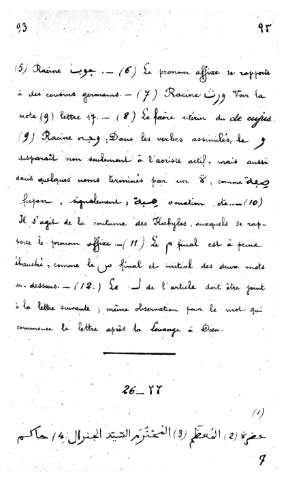 93 ٩٣
(5) Racine جوب. — (6) Le pronom affixe se rapporte
à des cousins germains — (7) Racine ورث Voir la
note (9) lettre 17. — (8) Le faire
(9) Racine وجه, Dans les verbes assimilés, le و
disparaît non seulement à l'aoriste actif, mais aussi
dans quelques noms terminés par un ة, comme
façon, signalement, — (10)
Il s'agit de la coutume des Kabyles, auxquels se rap-
porte le pronom affixe — (11) Le م final est à peine
ébauché, comme le س final et initial des deux mots
au-dessous. — (12.) Le لـ de l'article doit être joint
à la lettre suivante; même observation pour le mot qui
commence la lettre après la louange à Dieu.
26_٢٦
(1)
حضرة (2) المُعظّم (3) المُحْتَرَم السّيّد الجنرال (4) حاكم
7